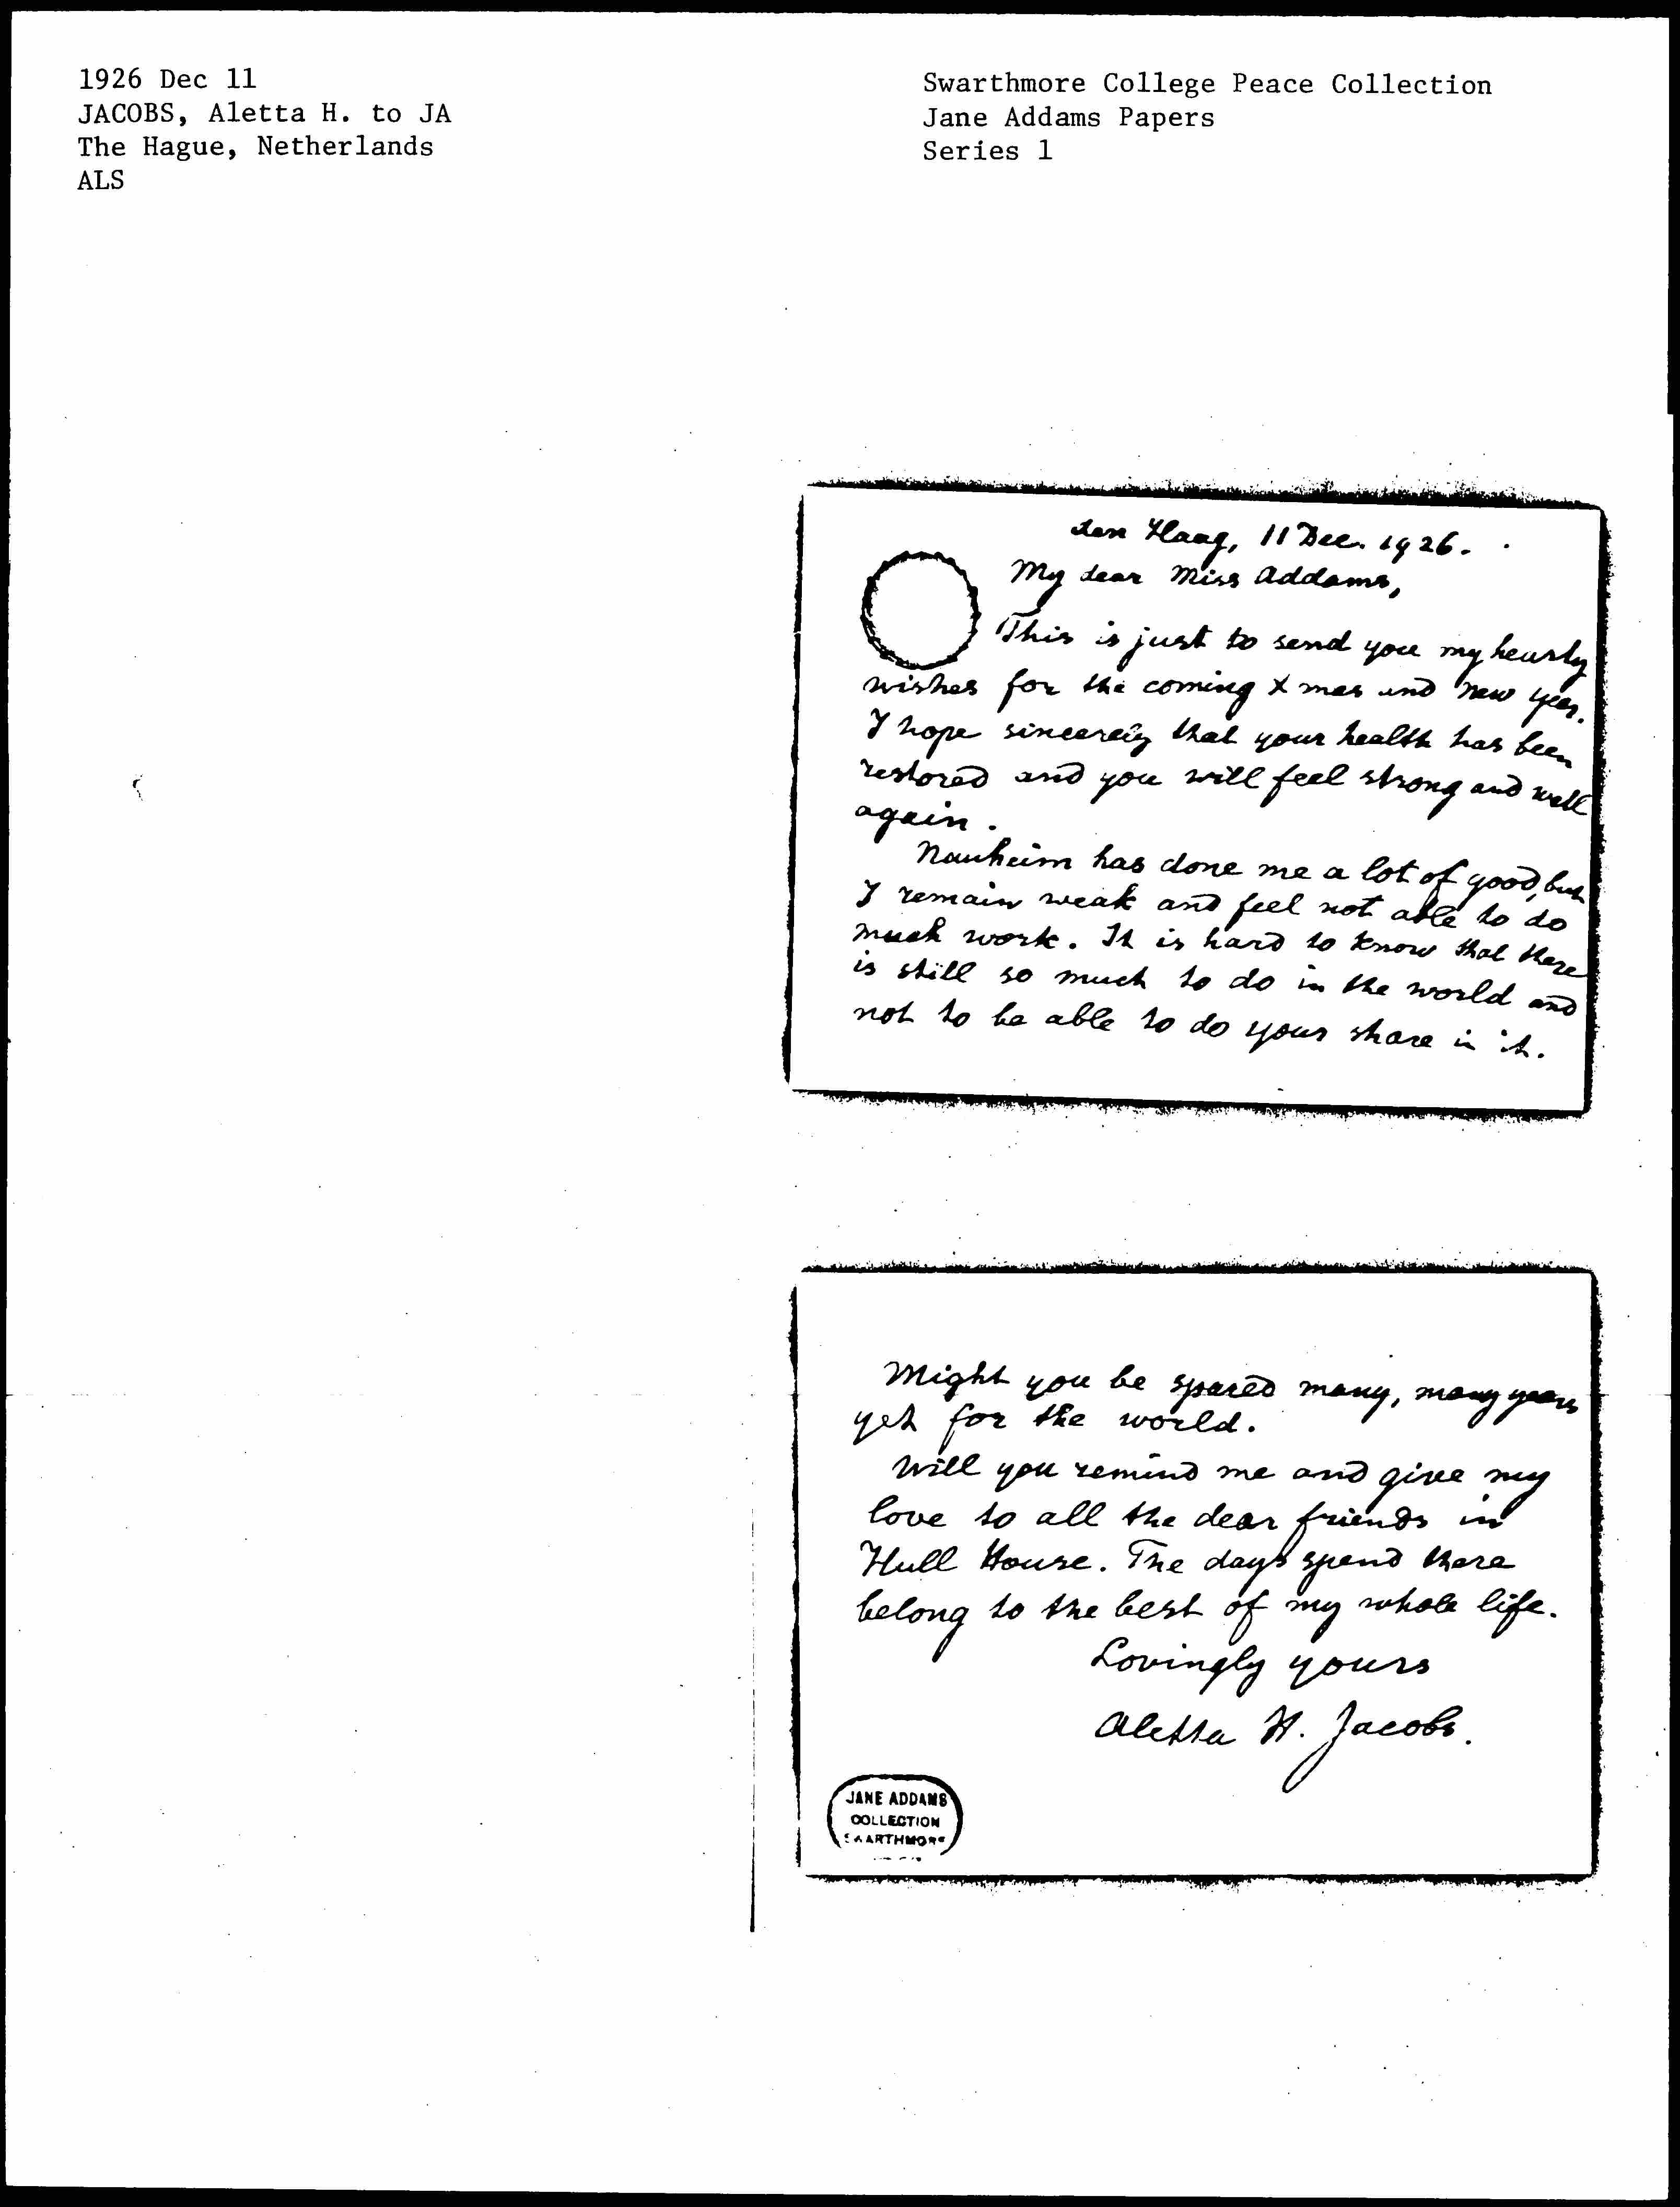 1926 Dec 11
JACOBS, Aletta H. to JA
The Hague, Netherlands
ALS
Swarthmore College Peace Collection
Jane Addams Papers
Series 1
den Haag, 11 Dec. 1926.
My dear Miss Addams,
This is just to send you my hearty
wishes for the coming Xmas and New Year.
I hope sincerely that your health has been
restored and you will feel strong and well
again.
Nauheim has done me a lot of good, but
I remain weak and feel not able to do
much work. It is hard to know that there
is still so much to do in the world and
not to be able to do your share in it.
Might you be spared many, many years
yet for the world.
Will you remind me and give my
love to all the dear friends in
Hull House. The days spend there
belong to the best of my whole life.
Lovingly yours
Aletta H. Jacobs.
JANE ADDAMS
COLLECTION
SWARTHMORE